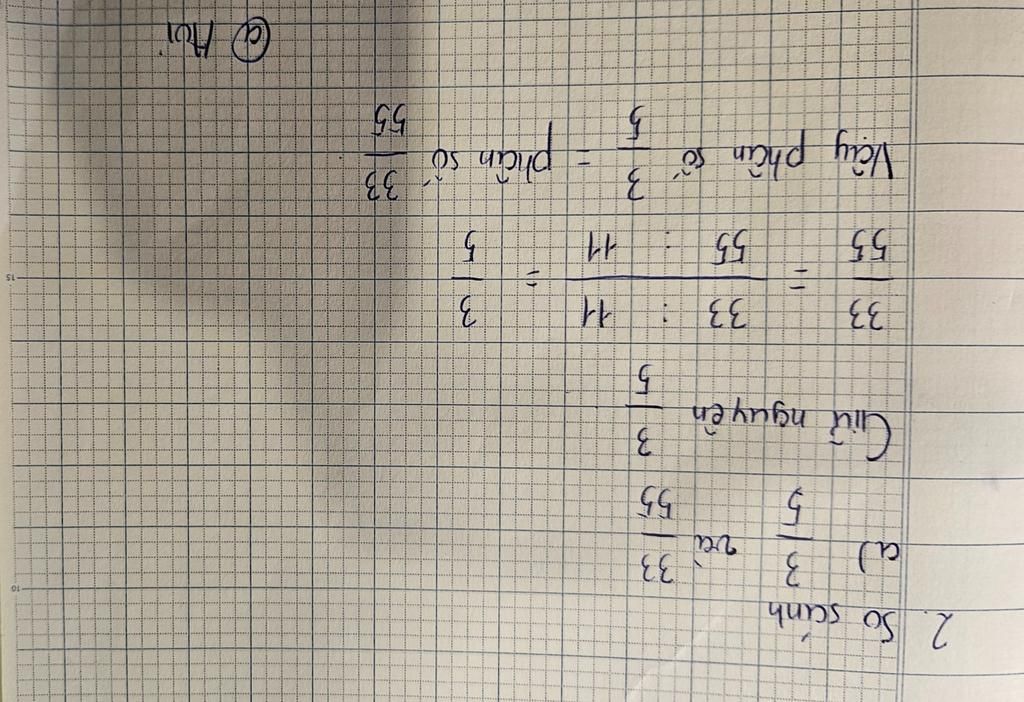 2. So sánh
a) 3/5 và 33/55
10
Giữ nguyên 3/5
33/55 = (33 : 11)/(55 : 11) = 3/5
15
Vậy phân số 3/5 = phân số 33/55